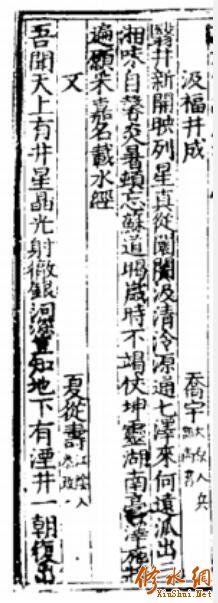 汲福井成　喬宇
井新開映列星真從閶闔汲清冷源通七澤來何遠派出三
湘味自馨炎暑頓忘蘇道暍歲時不竭仗坤靈湖南
遍願采嘉名載水經
又　夏從壽江陰人
吾聞天上有井星晶光射徹銀河深豈知地下有湮井一朝復出
修水网
XinShui.Net